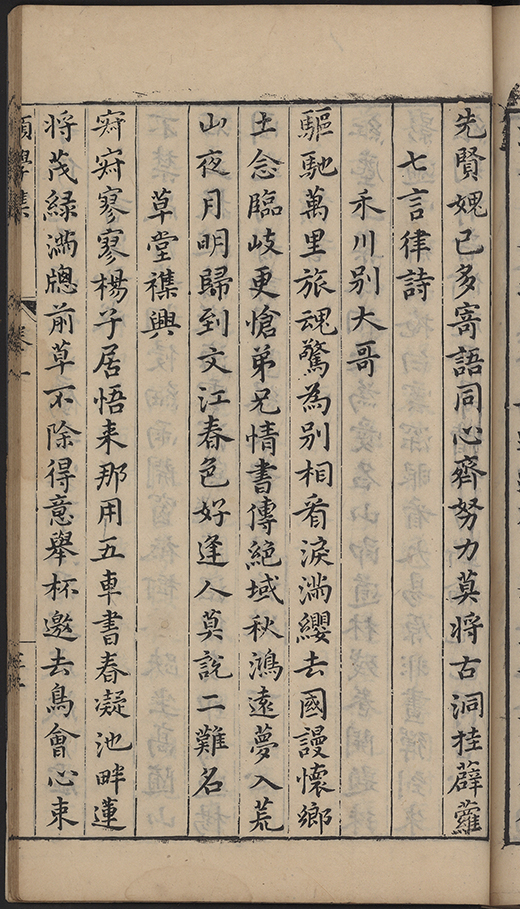 先賢媿已多寄語同心齊努力莫將古洞挂薜蘿
七言律詩
禾川別大哥
驅馳萬里旅魂驚為別相看淚滿纓去國謾懷鄉
土念臨岐更愴弟兄情書傳絕域秋鴻遠夢入荒
山夜月明歸到文江春色好逢人莫說二難名
草堂襍興
寂寂寥寥楊子居悟来那用五車書春凝池畔蓮
将茂緑滿牕前草不除得意舉杯邀去鳥會心束